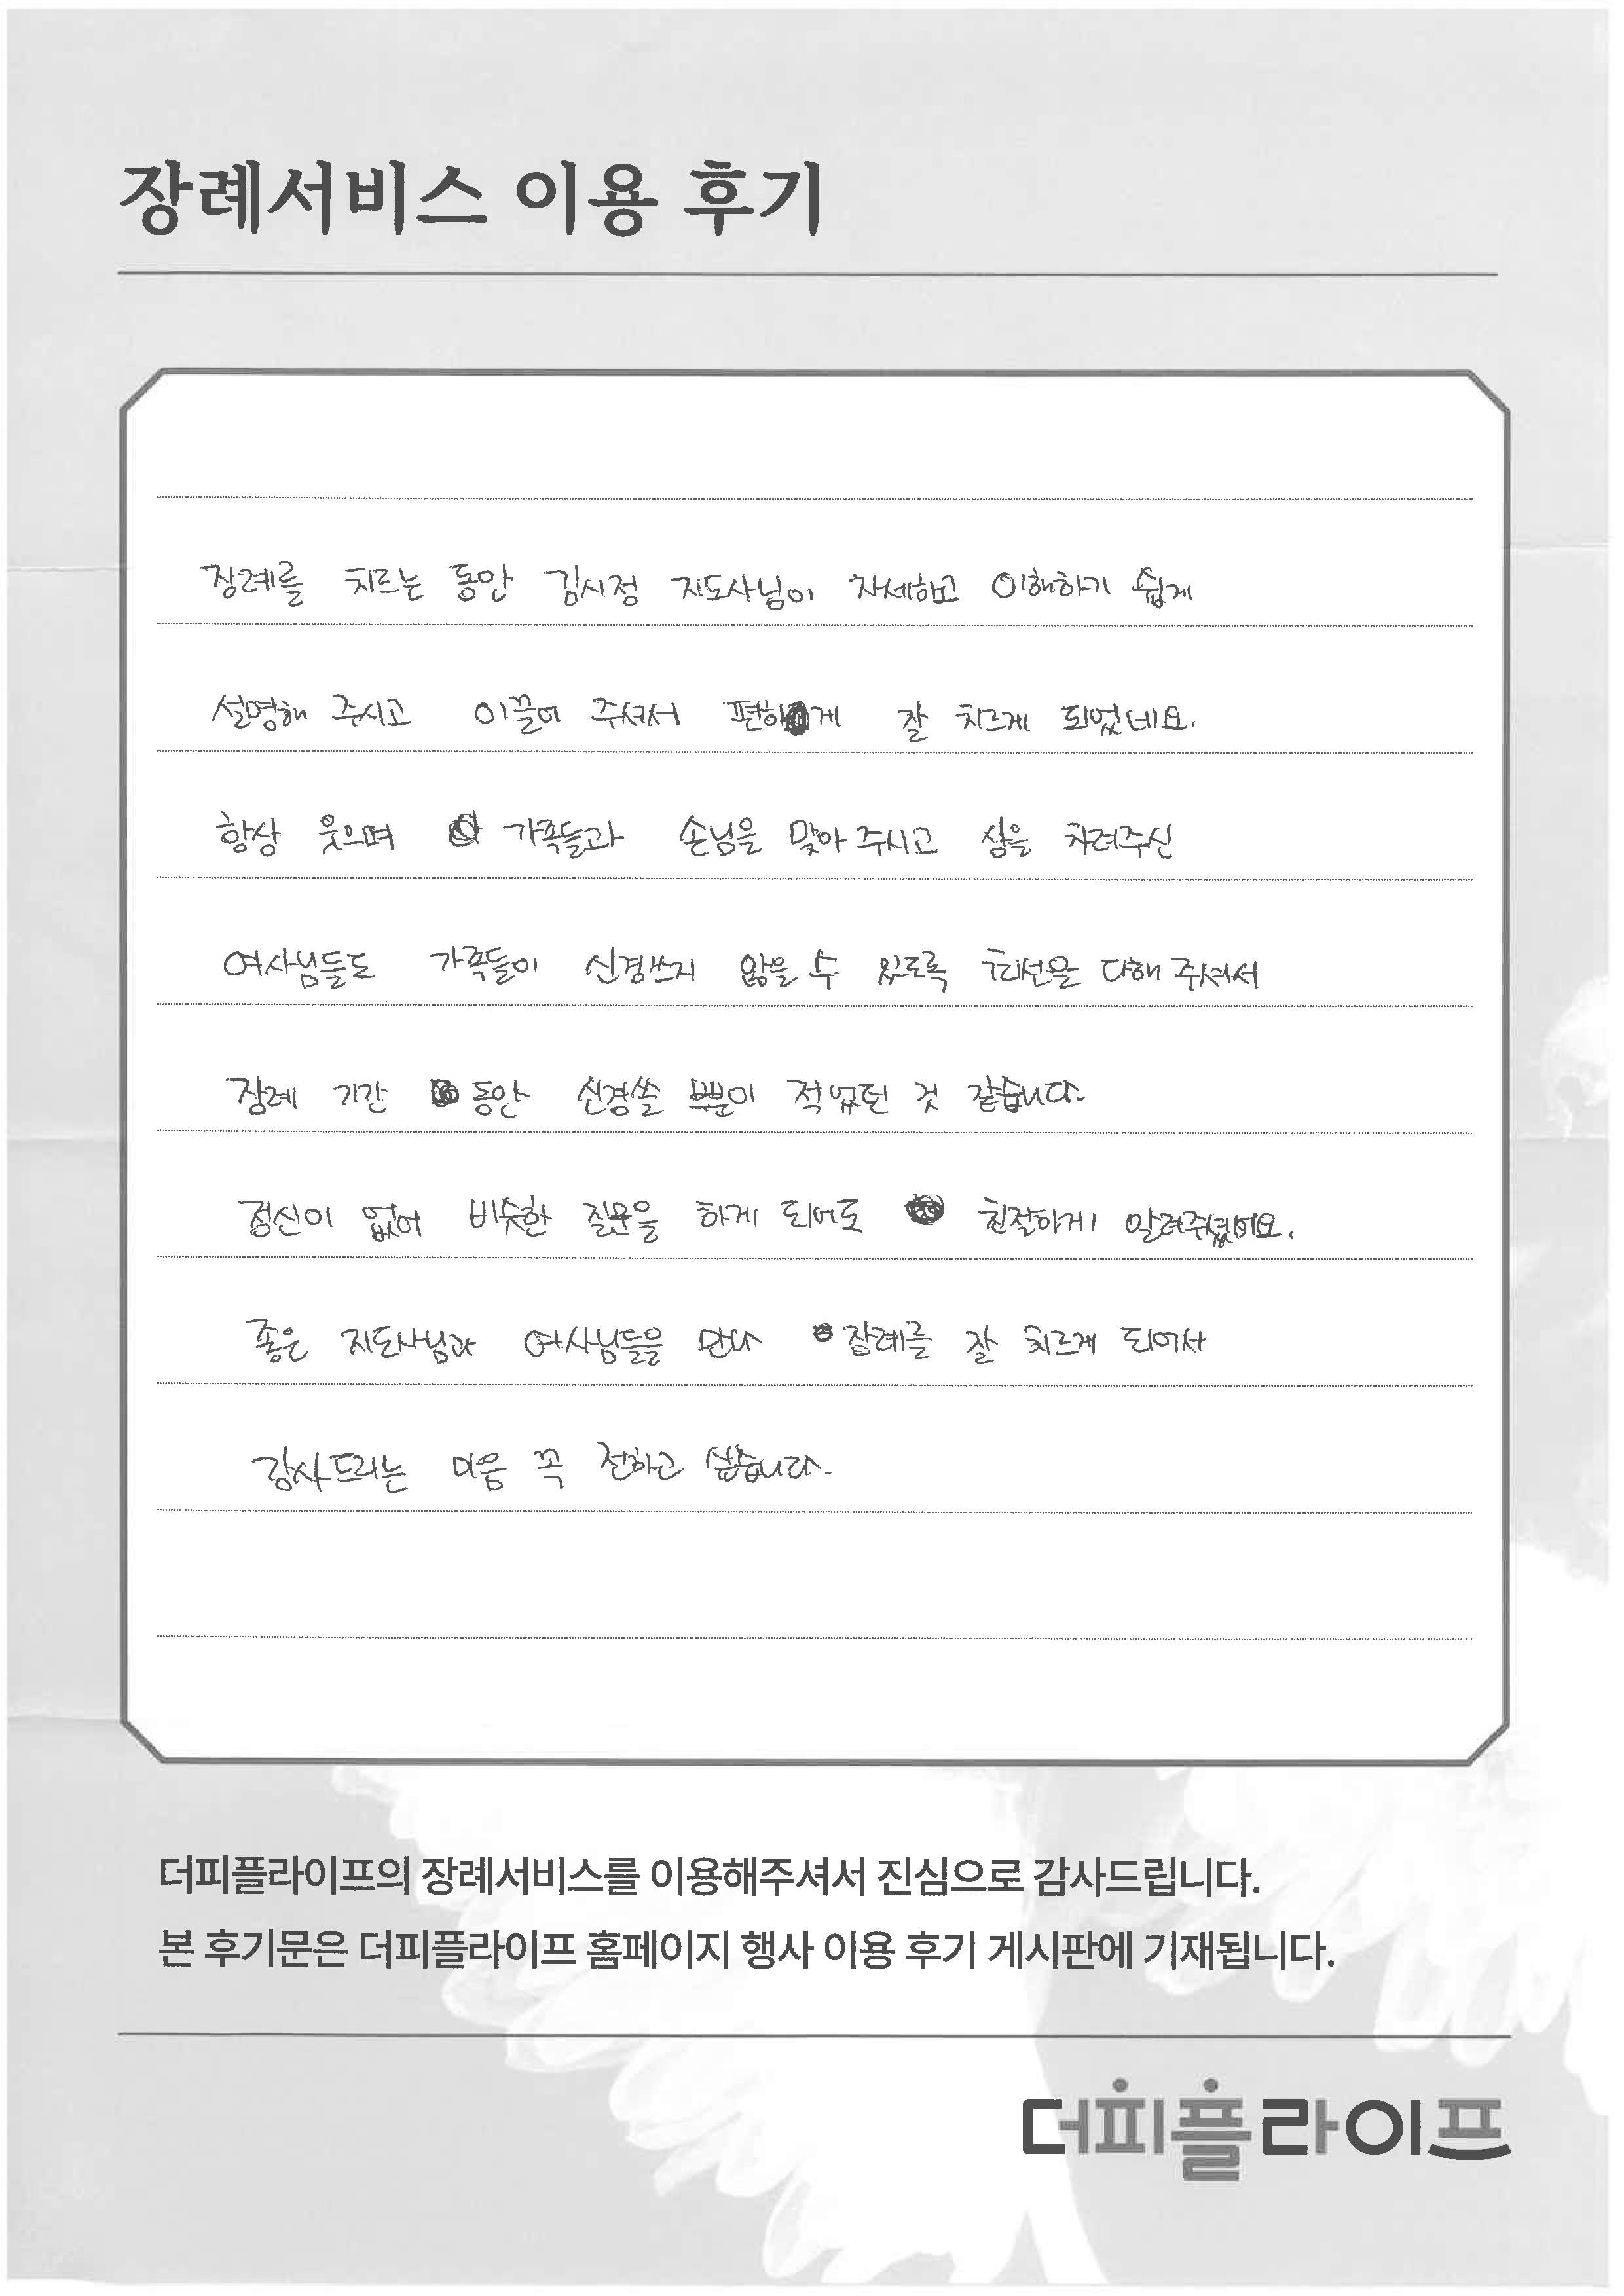 장례서비스 이용 후기
장례를 치르는 동안 김시정 지도사님이 자세하고 이해하기 쉽게
설명해 주시고 이끌어 주셔서 편하게 잘 치르게 되었네요.
항상 웃으며 가족들과 손님을 맞아 주시고 상을 차려주신
여사님들도 가족들이 신경쓰지 않을 수 있도록 최선을 다해 주셔서
장례 기간 동안 신경쓸 부분이 적었던 것 같습니다.
정신이 없어 비슷한 질문을 하게 되어도 친절하게 알려주셨어요.
좋은 지도사님과 여사님들을 만나 장례를 잘 치르게 되어서
감사드리는 마음 꼭 전하고 싶습니다.
더피플라이프의 장례서비스를 이용해주셔서 진심으로 감사드립니다.
본 후기문은 더피플라이프 홈페이지 행사 이용 후기 게시판에 기재됩니다.
더피플라이프